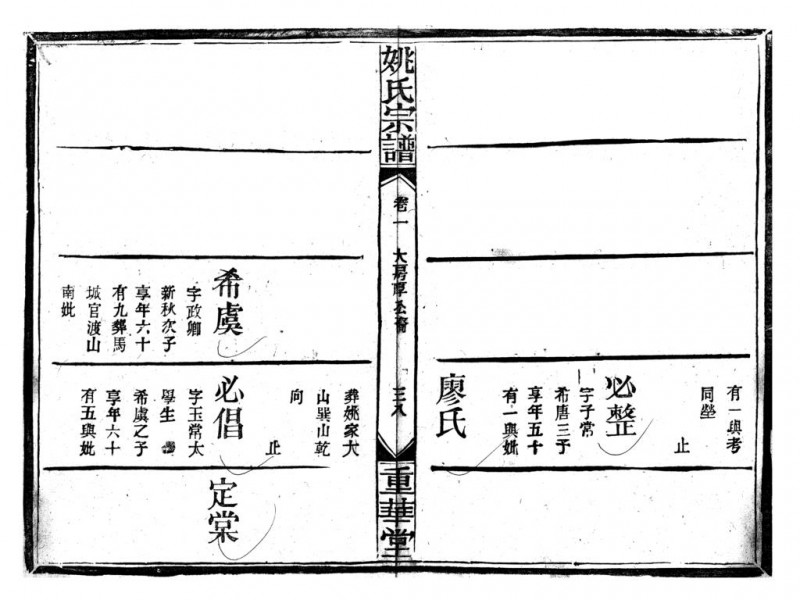 有一與考
同塋
止
必整
字子常
希唐三子
享年五十
有一與妣
廖氏
姚氏宗譜
卷一
大房厚公裔
三八
重華堂
葬姚家大
山巽山乾
向
止
希虞
字政卿
新秋次子
享年六十
有九葬馬
城官渡山
南妣
必倡
字玉常太
學生
希虞之子
享年六十
有五與妣
定棠